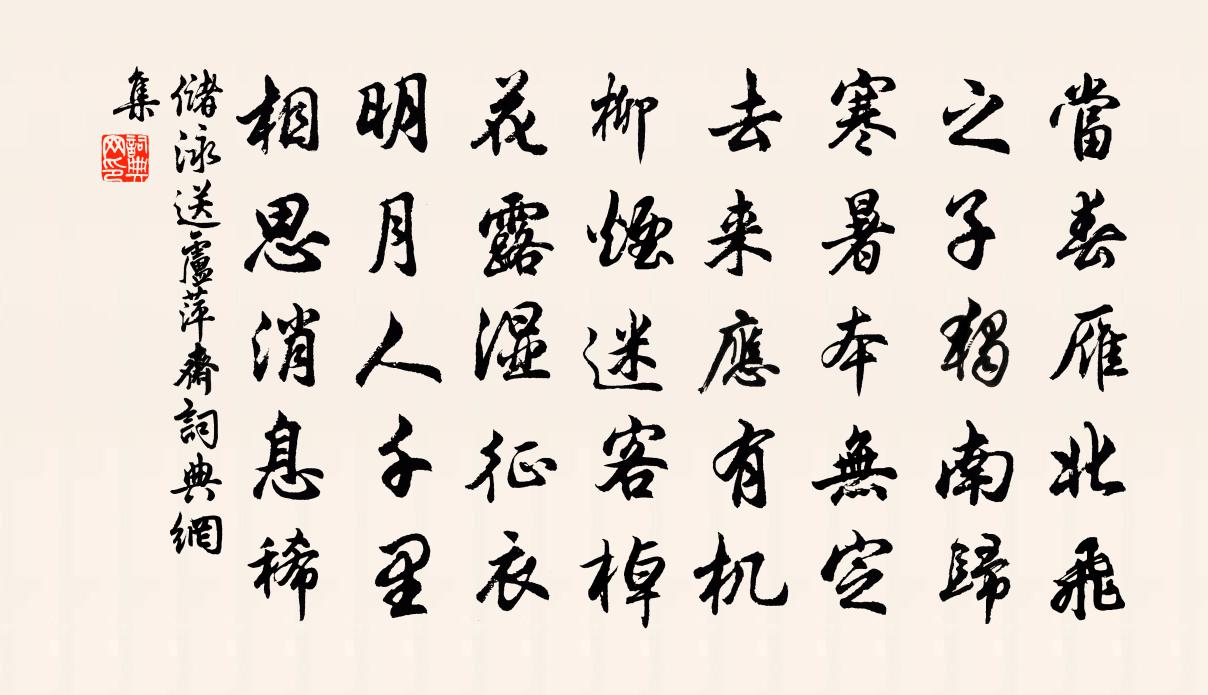 當春雁北飛
之子獨南歸
寒暑本無定
去来應有机
柳煙迷客棹
花露湿征衣
明月人千里
相思消息稀
儲泳送盧萍齋詞典網
集
詞典網印